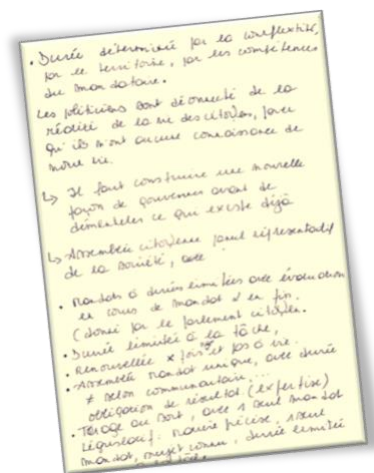 • Durée déterminée par la complexité,
par le territoire, par les compétences
du mandataire.
Les politiciens sont déconnecté de la
réalité de la vie des citoyens, parce
qu'ils n'ont aucune connaissance de
notre vie.
↳ Il faut construire une nouvelle
façon de gouverner avant de
démanteler ce qui existe déjà
↳ Assemblée citoyenne panel représentatif
de la société, avec
• Mandats à durées limitées avec évaluation
en cours de mandat et en fin.
(donné par le parlement citoyen.
• Durée limitée à la tâche,
• Renouvellée x fois et pas à vie.
• Assemblée mandat unique, avec durée
≠ selon communautaire...
obligation de résultat (expertise)
• Tirage au sort, avec 1 seul mandat
législatif: précise, 1 seul
mandat, projet connu, durée limitée